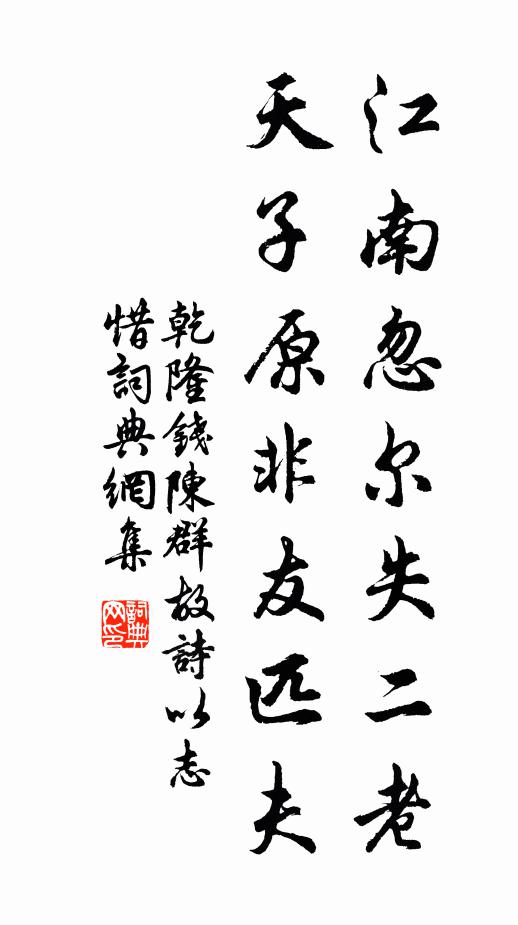 江南忽尔失二老
天子原非友匹夫
乾隆錢陳群故詩以志
惜詞典網集
詞典網印